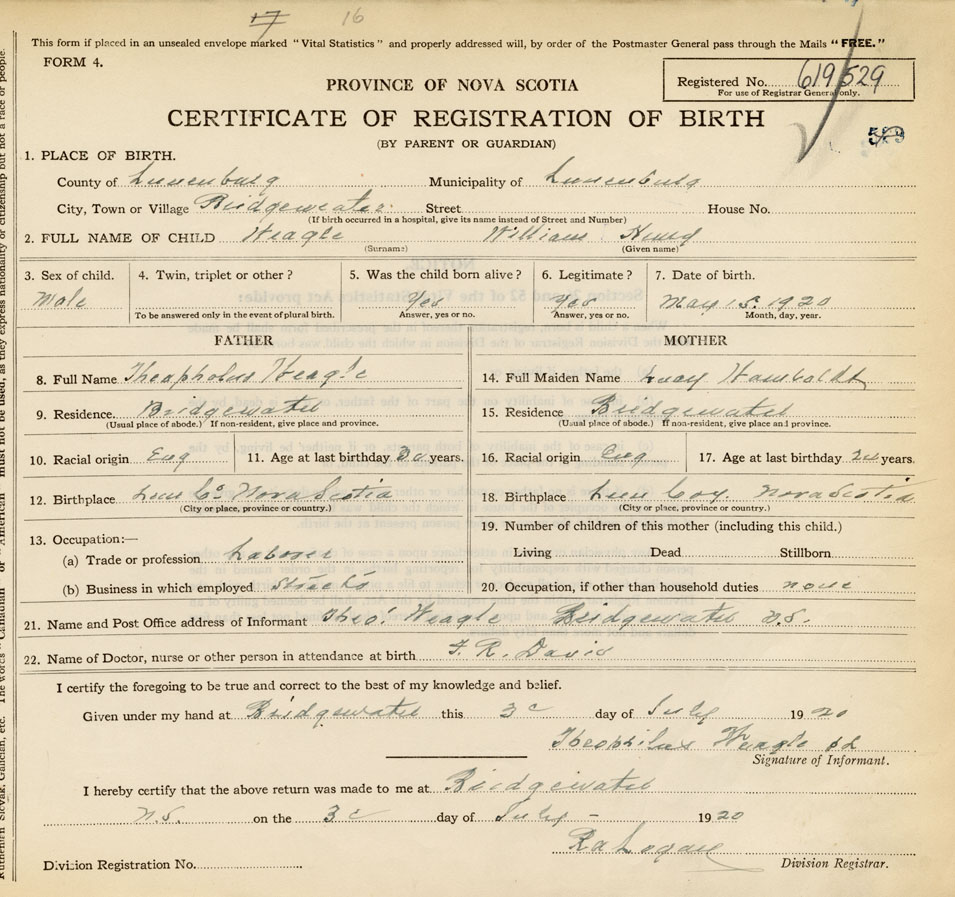 17 16
This form if placed in an unsealed envelope marked "Vital Statistics" and properly addressed will, by order of the Postmaster General pass through the Mails "FREE."
FORM 4.
Registered No. 619/529
For use of Registrar General only.
PROVINCE OF NOVA SCOTIA
CERTIFICATE OF REGISTRATION OF BIRTH
(BY PARENT OR GUARDIAN)
1. PLACE OF BIRTH.
County of Lunenburg Municipality of Lunenburg
City, Town or Village Bridgewater Street House No.
(If birth occurred in a hospital, give its name instead of Street and Number)
2. FULL NAME OF CHILD Weagle William Henry
(Surname) (Given name)
3. Sex of child. 4. Twin, triplet or other? 5. Was the child born alive? 6. Legitimate? 7. Date of birth.
Male Yes Yes May 15. 1920
To be answered only in the event of plural birth. Answer, yes or no. Answer, yes or no. Month, day, year.
FATHER MOTHER
8. Full Name Theapholus Weagle 14. Full Maiden Name Lucy
9. Residence. Bridgewater 15. Residence Bridgewater
(Usual place of abode.) If non-resident, give place and province. (Usual place of abode.) If non-resident, give place and province.
10. Racial origin Eng 11. Age at last birthday years. 16. Racial origin Eng 17. Age at last birthday years.
12. Birthplace Lun Co. Nova Scotia 18. Birthplace Lun Coy. Nova Scotia
(City or place, province or country.) (City or place, province or country.)
19. Number of children of this mother (including this child.)
13. Occupation:—
(a) Trade or profession Laborer Living Dead Stillborn
(b) Business in which employed Streets 20. Occupation, if other than household duties none
21. Name and Post Office address of Informant Theo. Weagle Bridgewater N.S.
22. Name of Doctor, nurse or other person in attendance at birth F. R. Davis
I certify the foregoing to be true and correct to the best of my knowledge and belief.
Given under my hand at Bridgewater this 3 day of July 1920
Theophilus Weagle
Signature of Informant.
I hereby certify that the above return was made to me at Bridgewater
N.S. on the 3 day of July - 1920
Ra Logan
Division Registration No. Division Registrar.